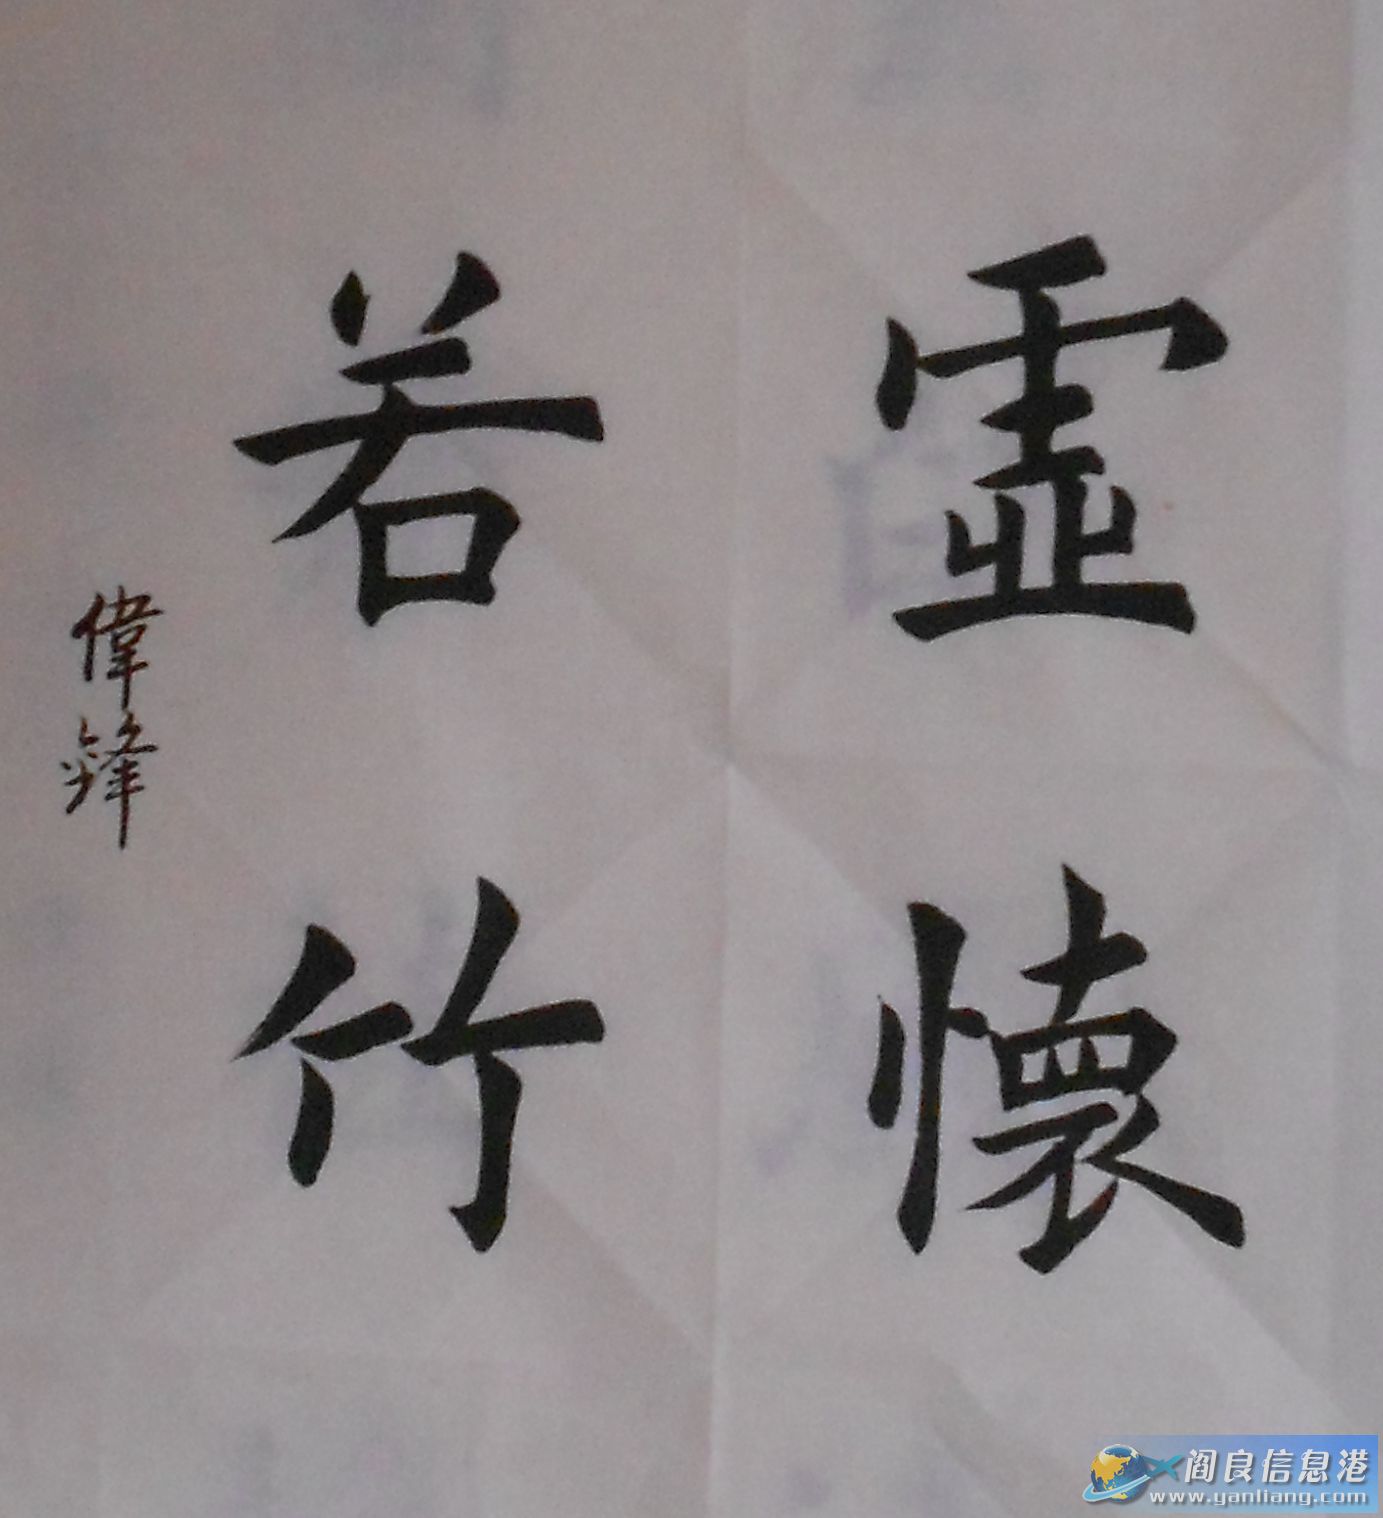 虛懷
若竹
偉鋒
阎良信息港
www.yanliang.com